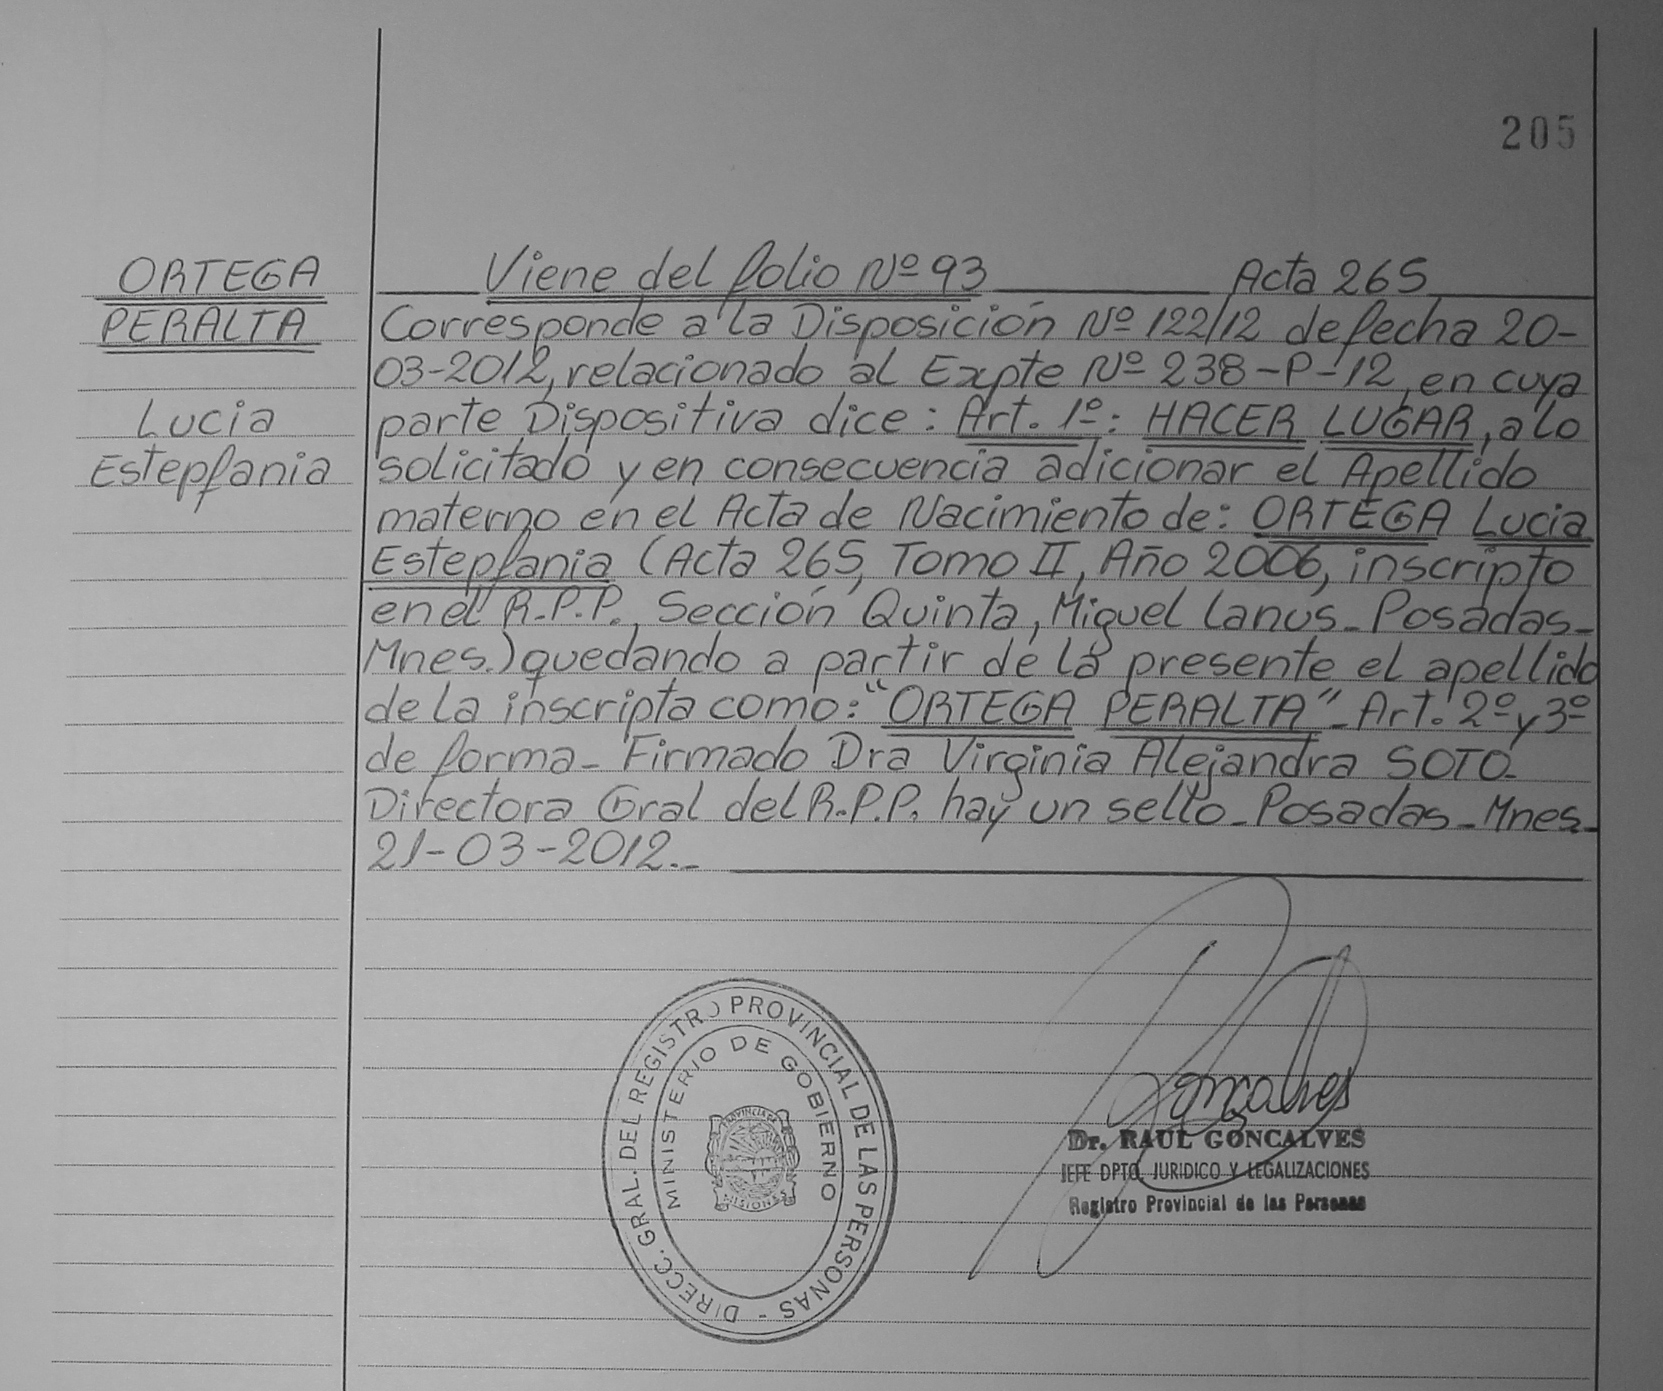 205
ORTEGA
PERALTA
Lucia
Estepfania
Viene del folio Nº 93 Acta 265
Corresponde a la Disposición Nº 122/12 de fecha 20-
03-2012, relacionado al Expte Nº 238-P-12, en cuya
parte Dispositiva dice: Art. 1º: HACER LUGAR, a lo
solicitado y en consecuencia adicionar el Apellido
materno en el Acta de Nacimiento de: ORTEGA Lucia
Estepfania (Acta 265, Tomo II, Año 2006, inscripto
en el R.P.P., Sección Quinta, Miguel Lanus-Posadas-
Mnes.) quedando a partir de la presente el apellido
de la inscripta como: "ORTEGA PERALTA"- Art. 2º y 3º
de forma- Firmado Dra Virginia Alejandra SOTO-
Directora Gral del R.P.P. hay un sello-Posadas-Mnes-
21-03-2012.-
DIRECC. GRAL. DEL REGISTRO PROVINCIAL DE LAS PERSONAS -
MINISTERIO DE GOBIERNO
PROVINCIA DE
MISIONES
Goncalves
Dr. RAUL GONCALVES
JEFE DPTO. JURIDICO Y LEGALIZACIONES
Registro Provincial de las Personas